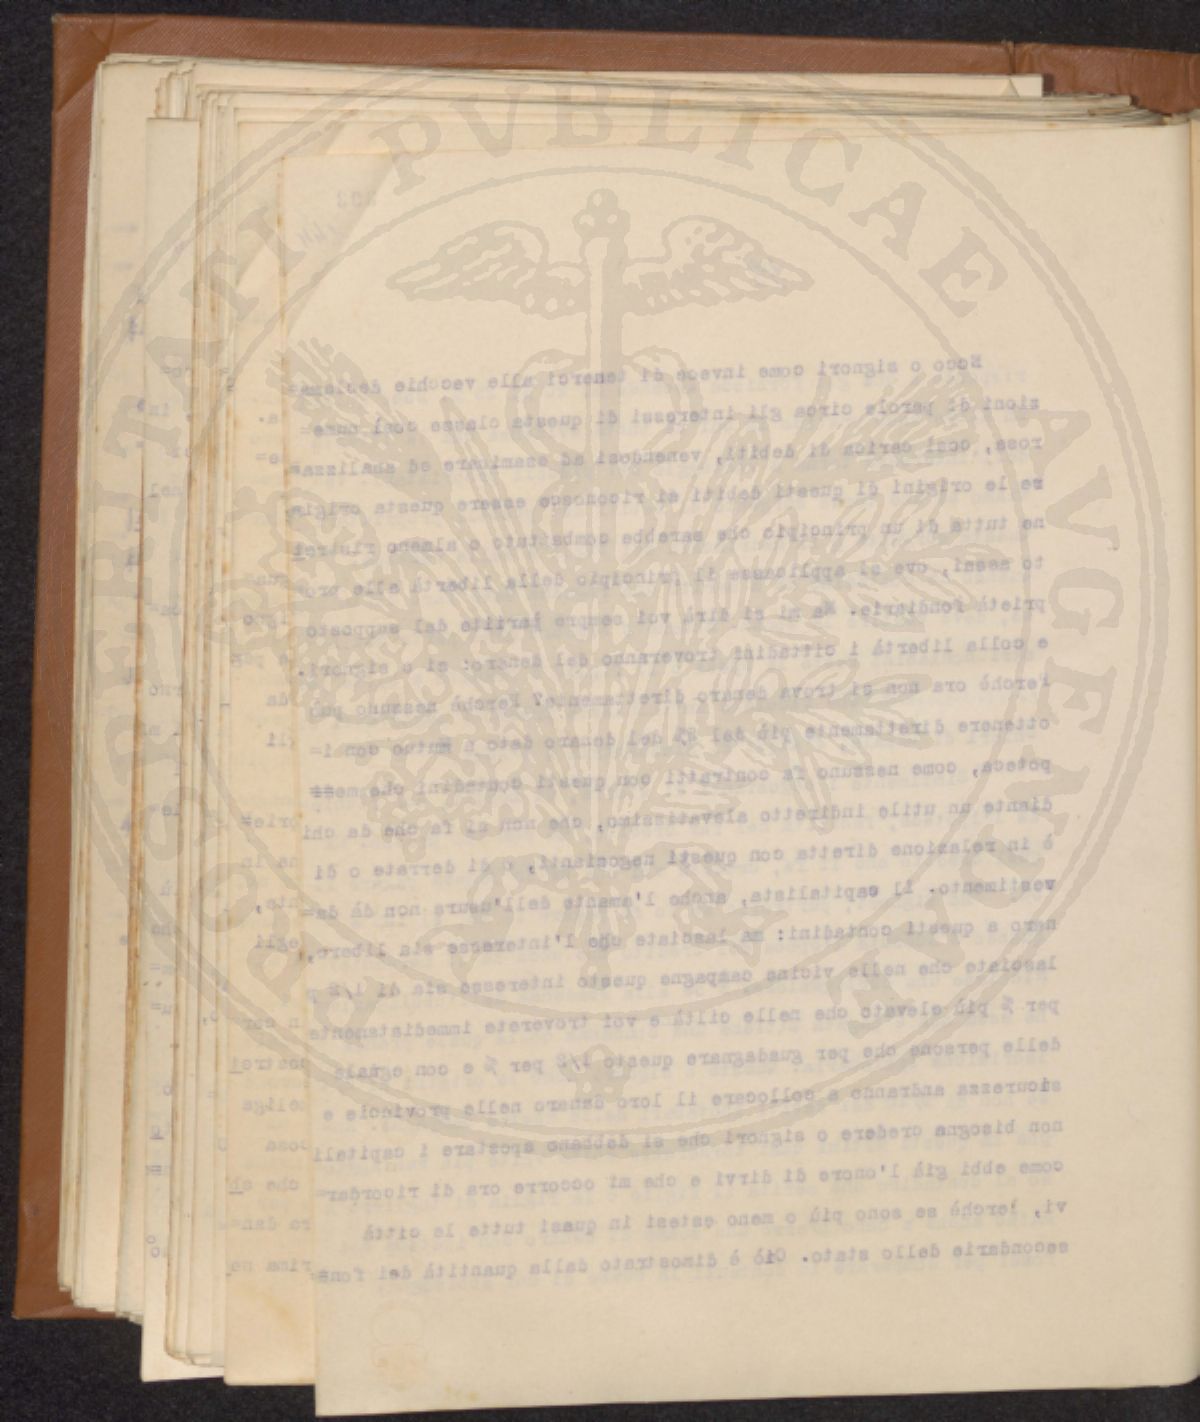 PROSPERITATI PVBLICAE AVGENDAE
Ecco o signori come invece di tenerci alle vecchie declama=
zioni di parole circa gli interessi di questa classe così nume=
rosa, così carica di debiti, venendosi ad esaminare ed analizza=
re le origini di questi debiti si riconosce essere questa origi
ne tutta di un principio che sarebbe combattuto o almeno ristret
to assai, ove si applicasse il principio della libertà alle pro=
prietà fondiarie. Ma mi si dirà voi sempre partite dal supposto
e colla libertà i cittadini troveranno del denaro: si o signori.
Perchè ora non si trova denaro direttamente? Perchè nessuno può
ottenere direttamente più del 5% del denaro dato a mutuo con i=
poteca, come nessuno fa contratti con questi contadini che me
diante un utile indiretto elevatissimo, che non si fa che da chi
è in relazione diretta con questi negozianti, o di derrate o di
vestimento. Il capitalista, anche l'amante dell'usura non dà da=
naro a questi contadini: ma lasciate che l'interesse sia libero,
lasciate che nelle vicine campagne questo interesse sia di 1/2 p
per % più elevato che nelle città e voi troverete immediatamente
delle persone che per guadagnare questo 1/2 per % e con eguale
sicurezza andranno a collocare il loro danaro nelle provincie e
non bisogna credere o signori che si debbano spostare i capitali
come ebbi già l'onore di dirvi e che mi occorre ora di ricordar=
vi, perchè se sono più o meno estesi in quasi tutte le città
secondarie dello stato. Ciò è dimostrato dalla quantità dei fon=